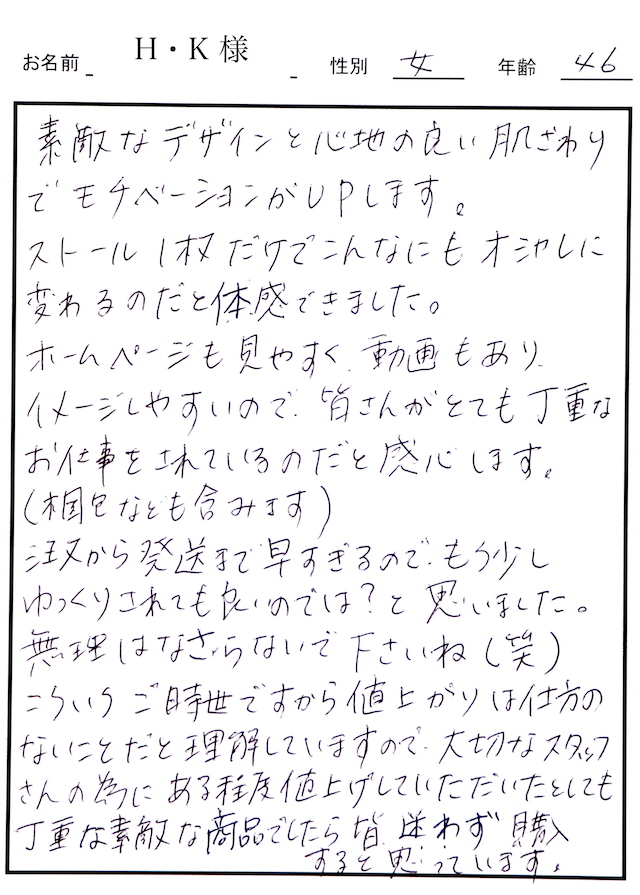 お名前 H・K様 性別 女 年齢 46
素敵なデザインと心地の良い肌ざわり
でモチベーションがUPします。
ストール1枚だけでこんなにもオシャレに
変わるのだと体感できました。
ホームページも見やすく、動画もあり、
イメージしやすいので、皆さんがとても丁重な
お仕事をされているのだと感心します。
(梱包なども含みます)
注文から発送まで早すぎるので、もう少し
ゆっくりされても良いのでは?と思いました。
無理はなさらないで下さいね(笑)
こういうご時世ですから値上がりは仕方の
ないことだと理解していますので、大切なスタッフ
さんの為にある程度値上げしていただいたとしても
丁重な素敵な商品でしたら皆、迷わず購入
すると思っています。